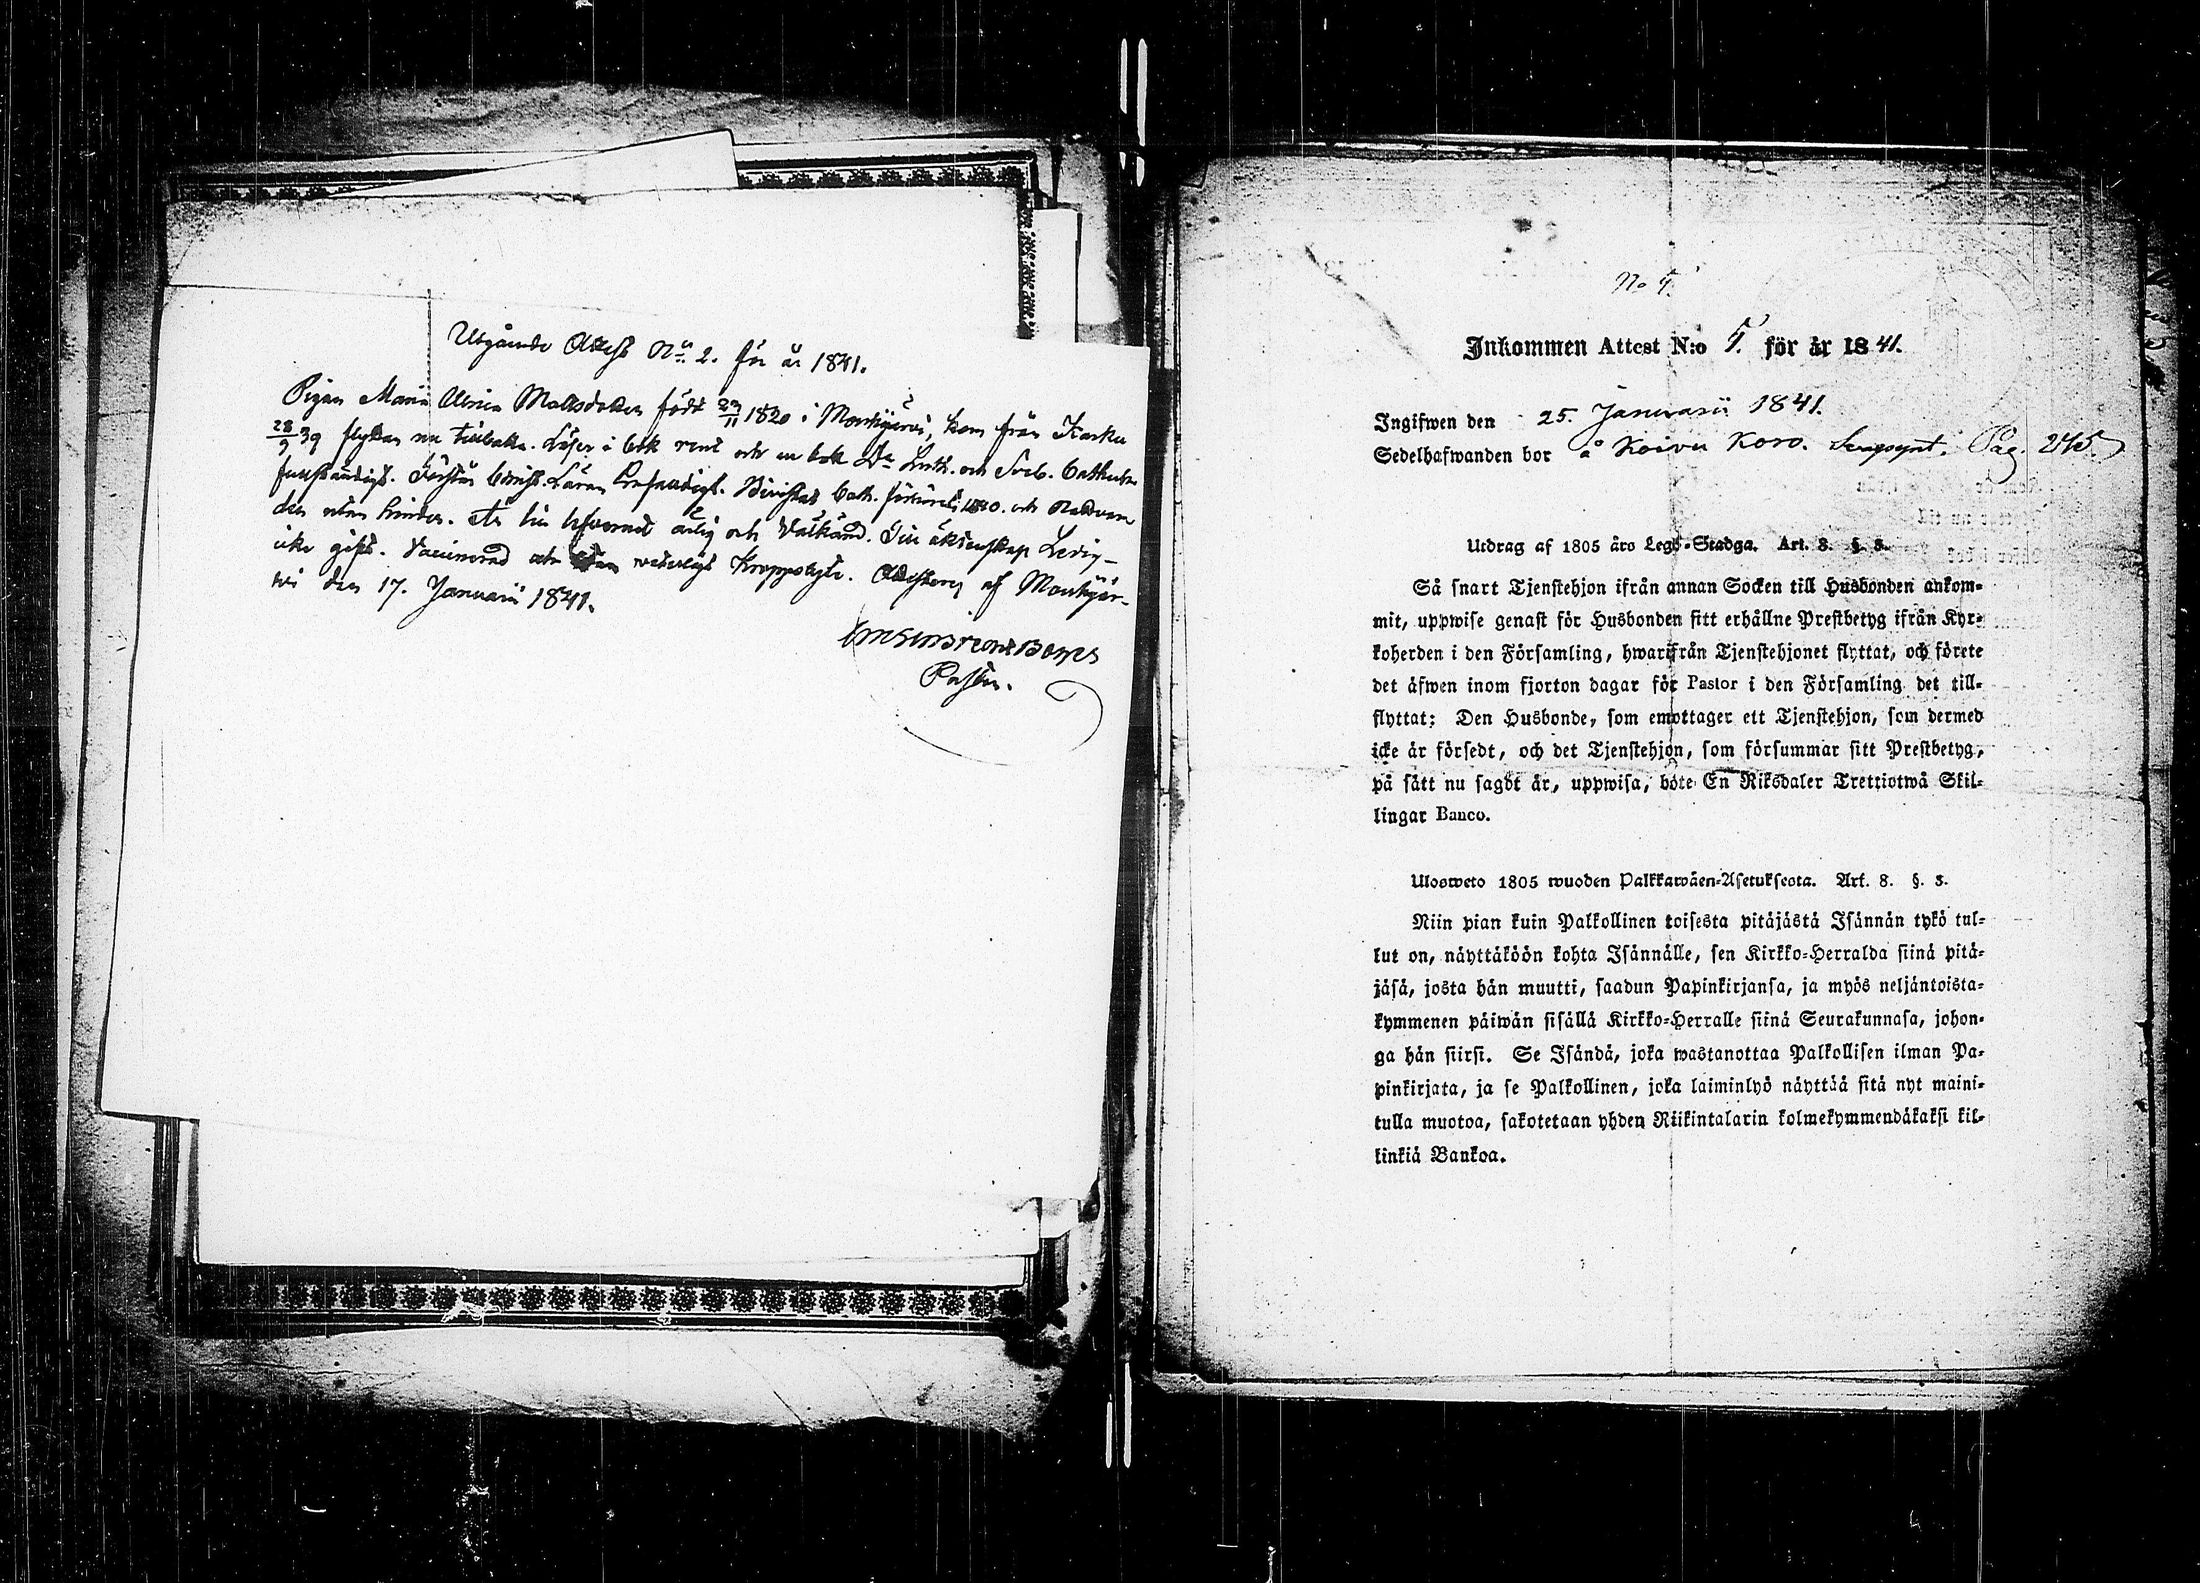 Utgående Attest No 2. för år 1841.
Pigan Maria Ulrica Mattsdotter född 23/11 1820 i Mouhijärvi, kom från Karku
28/9 39 flyttar nu tillbaka. Läser i bok rent och en bok Dr Luth. och Sveb. Catheches
fullständigt. Förstår Christ. Läran försvarligt. Bivistat Cath. förhören 1840. och Nattvar-
den utan hinder. Är till lefvernet ärlig och välkänd. Till äktenskap Ledig
icke gift. Vaccinerad och utan veterligt Kroppslyte. Attesterar af Mouhijär-
wi den 17. Januarii 1841.
Pastor.
No 5.
Inkommen Attest N:o 5. för år 1841.
Ingifwen den 25. Januarii 1841.
Sedelhafwanden bor å Koivu Koro. Pag. 245.
Utdrag af 1805 års Lego-Stadga. Art. 8. §. 3.
Så snart Tjenstehjon ifrån annan Socken till Husbonden ankom-
mit, uppwise genast för Husbonden sitt erhållne Prestbetyg ifrån Kyr-
koherden i den Församling, hwarifrån Tjenstehjonet flyttat, och förete
det äfwen inom fjorton dagar för Pastor i den Församling det till-
flyttat; Den Husbonde, som emottager ett Tjenstehjon, som dermed
icke är försedt, och det Tjenstehjon, som försummar sitt Prestbetyg,
på sätt nu sagdt är, uppwisa, böte En Riksdaler Trettiotwå Skil-
lingar Banco.
Ulosweto 1805 wuoden Palkkawäen-Asetuksesta. Art. 8. §. 3.
Niin pian kuin Palkollinen toisesta pitäjästä Isännän tykö tul-
lut on, näyttäköön kohta Isännälle, sen Kirkko-Herralda siinä pitä-
jäsä, josta hän muutti, saadun Papinkirjansa, ja myös neljäntoista-
kymmenen päiwän sisällä Kirkko-Herralle siinä Seurakunnasa, johon-
ga hän siirsi. Se Isändä, joka wastanottaa Palkollisen ilman Pa-
pinkirjata, ja se Palkollinen, joka laiminlyö näyttää sitä nyt maini-
tulla muotoa, sakotetaan yhden Riikintalarin kolmekymmendäkaksi kil-
linkiä Bankoa.